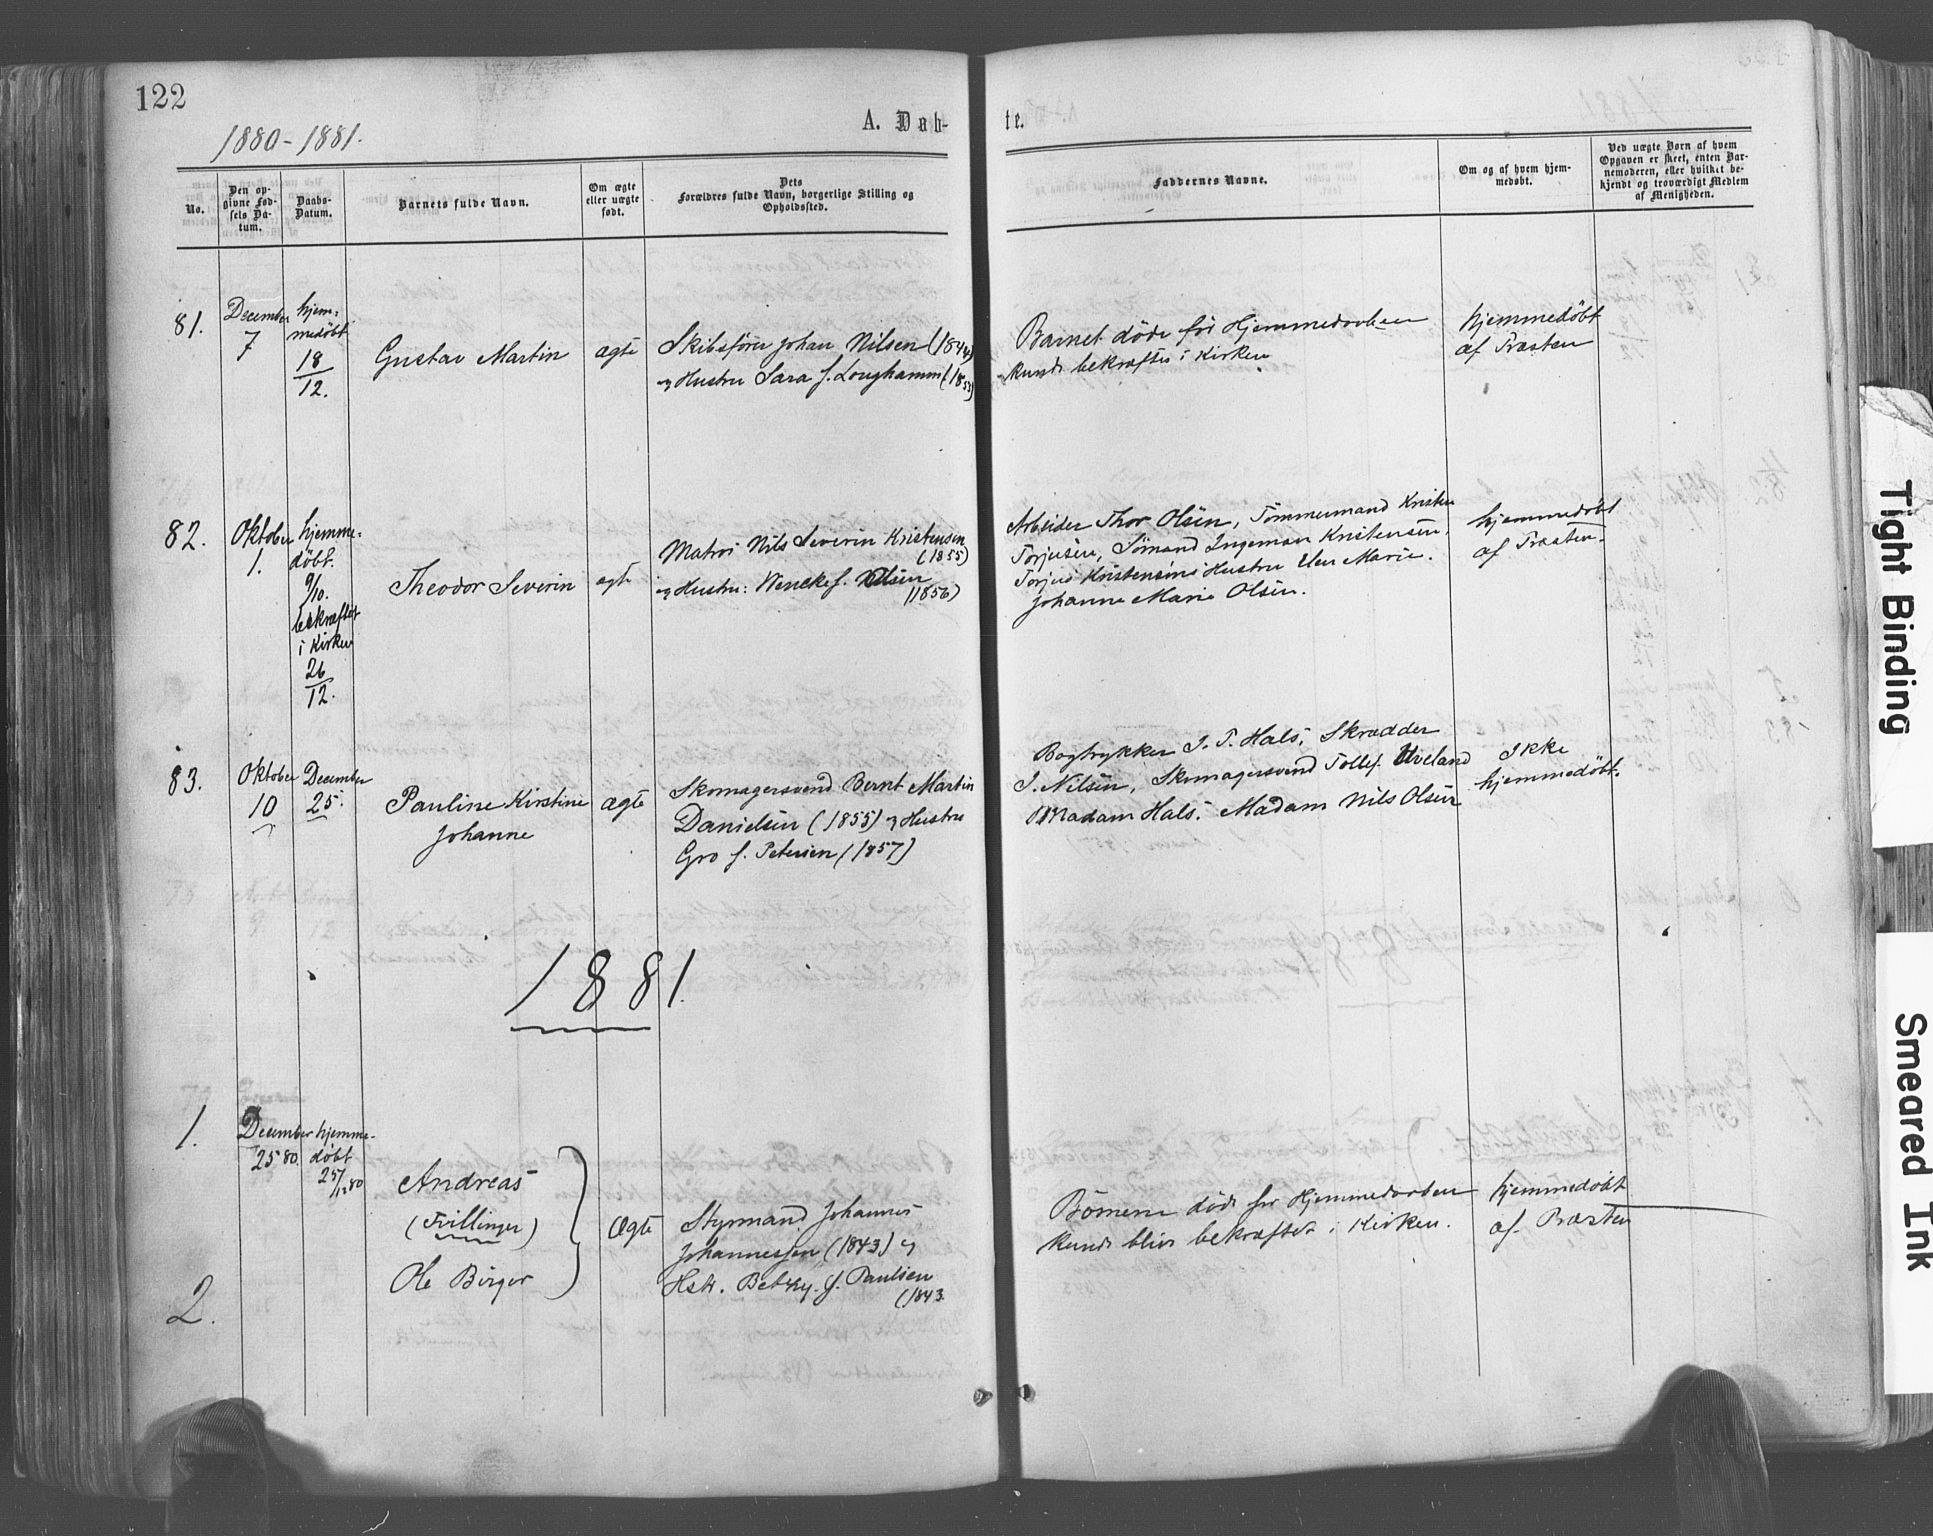 122
1880-1881.
A. Døb-
te.
No.
Den op-
givne Fød-
sels Da-
tum.
Daabs-
Datum.
Barnets fulde Navn.
Om ægte
eller uægte
født.
Dets
Forældres fulde Navn, borgerlige Stilling og
Opholdssted.
Faddernes Navne.
Om og af hvem hjem-
medøbt.
Ved uægte Børn af hvem
Opgaven er skeet, enten Bar-
nemoderen, eller hvilket be-
kjendt og troværdigt Medlem
af Menigheden.
81.
December
7
hjem-
medøbt
18
12.
Gustav Martin
ægte
Skibsfører Johan Nilsen (1844)
og Hustru Sara f. Longhamm (1853)
Barnet døde før Hjemmedaaben
kunde bekræftes i Kirken
hjemmedøbt
af Præsten
82.
Oktober
1.
hjemme-
døbt.
9/10.
bekræftet
i Kirken
26
12.
Theodor Severin
ægte
Matros Nils Severin Kristensen
(1855)
og Hustru: Wencke f. Olsen
(1856)
Arbeider Thor Olsen, Tømmermand Kristen
Torjusen, Sømand Ingeman Kristensen,
Torjus Kristensens Hustru Elen Marie.
Johanne Marie Olsen.
hjemmedøbt
af Præsten.
83.
Oktober
10
December
25.
Pauline Kirstine
Johanne
ægte
Skomagersvend Bernt Martin
Danielsen (1855) og Hustru
Gro f. Petersen (1857)
Bogtrykker J. T. Hals, Skrædder
J. Nilsen, Skomagersvend Tollef Uveland
Madam Hals, Madam Nils Olsen
Ikke
hjemmedøbt.
1881.
1.
December
25 80.
hjemme-
døbt
25/12 80
Andreas
(Tvillinger)
Ole Birger
2.
Ægte
Styrmand Johannes
Johannessen (1843) og
Hstr. Betzy f. Paulsen
(1843
Børnene døde før Hjemmedaaben
kunde blive bekræftet i Kirken.
hjemmedøbt
af Præsten
Tight Binding
Smeared Ink